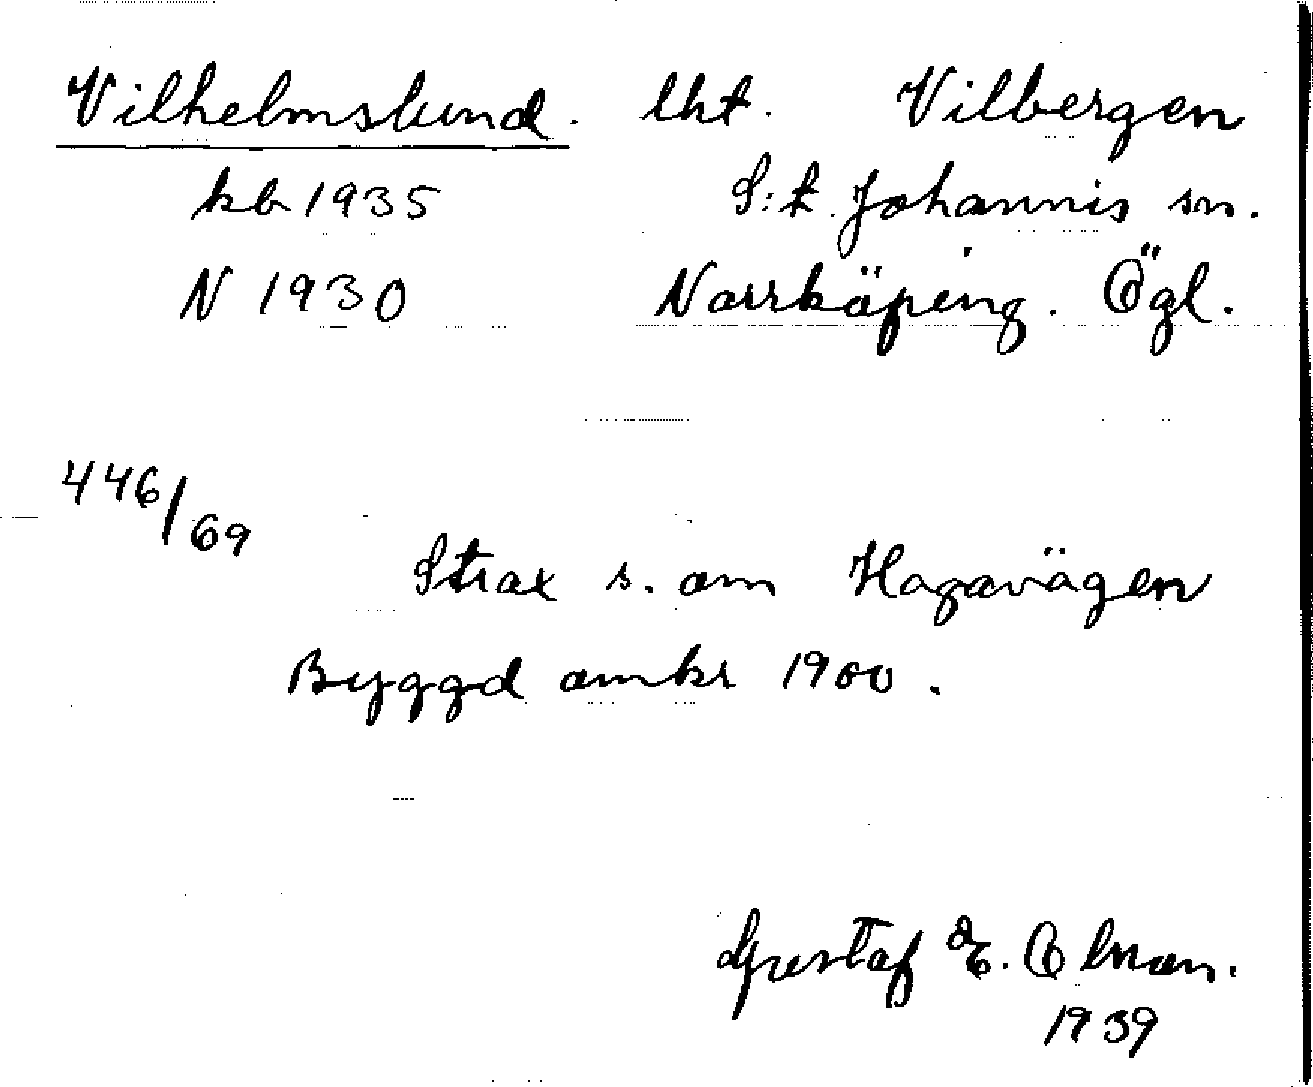 Vilhelmslund. lht. Vilbergen
kb 1935 S:t Johannis sn.
N 1930 Norrköping. Ögl.
446/69
Strax s. om Hagavägen
Byggd omkr 1900.
Gustaf
1939